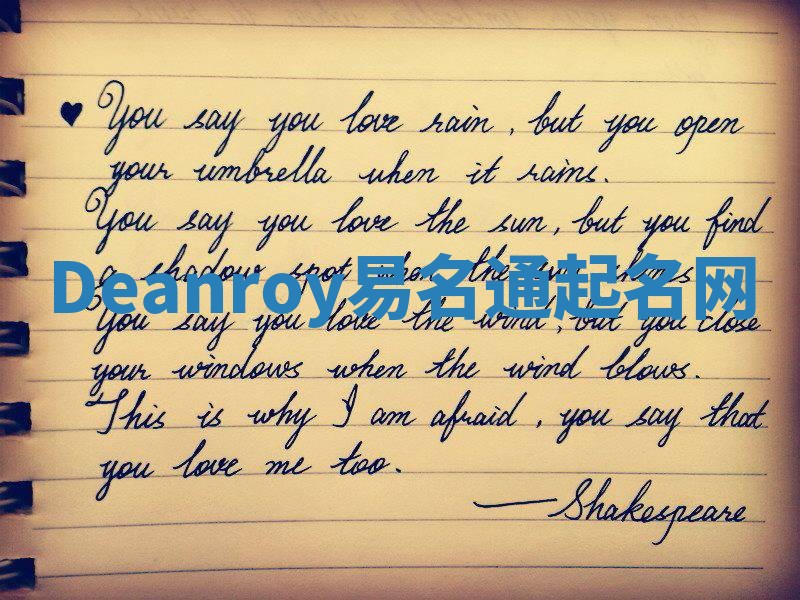 ♥ You say you love rain, but you open
your umbrella when it rains.
You say you love the sun, but you find
a shadow spot when the sun shines
Deanroy易名通起名网
You say you love the wind, but you close
your windows when the wind blows.
This is why I am afraid, you say that
you love me too.
—Shakespeare